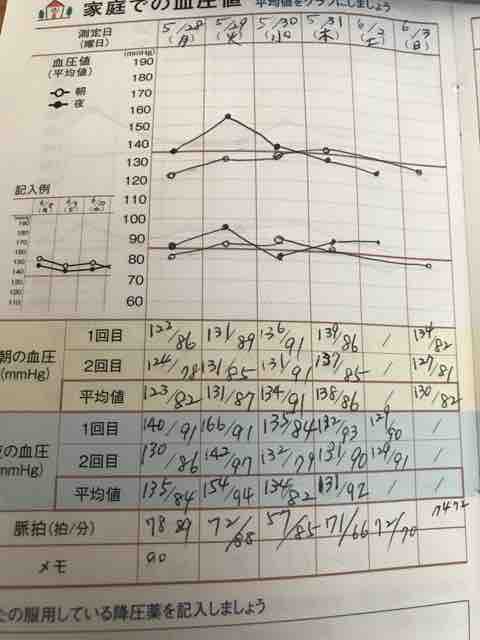 家庭での血圧値 平均値をグラフにしましょう
測定日 5/28 5/29 5/30 5/31 6/2 6/3
(曜日) (月) (火) (水) (木) (土) (日)
血圧値 (mmHg)
(平均値) 190
180
朝 170
夜 160
150
140
130
120
記入例 110
100
90
80
70
60
朝の血圧 1回目 122/86 131/89 136/91 139/86 / 134/82
(mmHg) 2回目 124/78 131/85 131/91 137/85 / 127/81
平均値 123/82 131/87 134/91 138/86 / 130/82
の血圧 1回目 140/91 166/91 135/84 132/93 129/90 /
mmHg) 2回目 130/86 142/97 132/79 131/90 129/91 /
平均値 135/84 154/94 134/82 131/92 / /
脈拍(拍/分) 78 89 72/88 57/85 71/66 72/70 74 72
メモ 90
の服用している降圧薬を記入しましょう